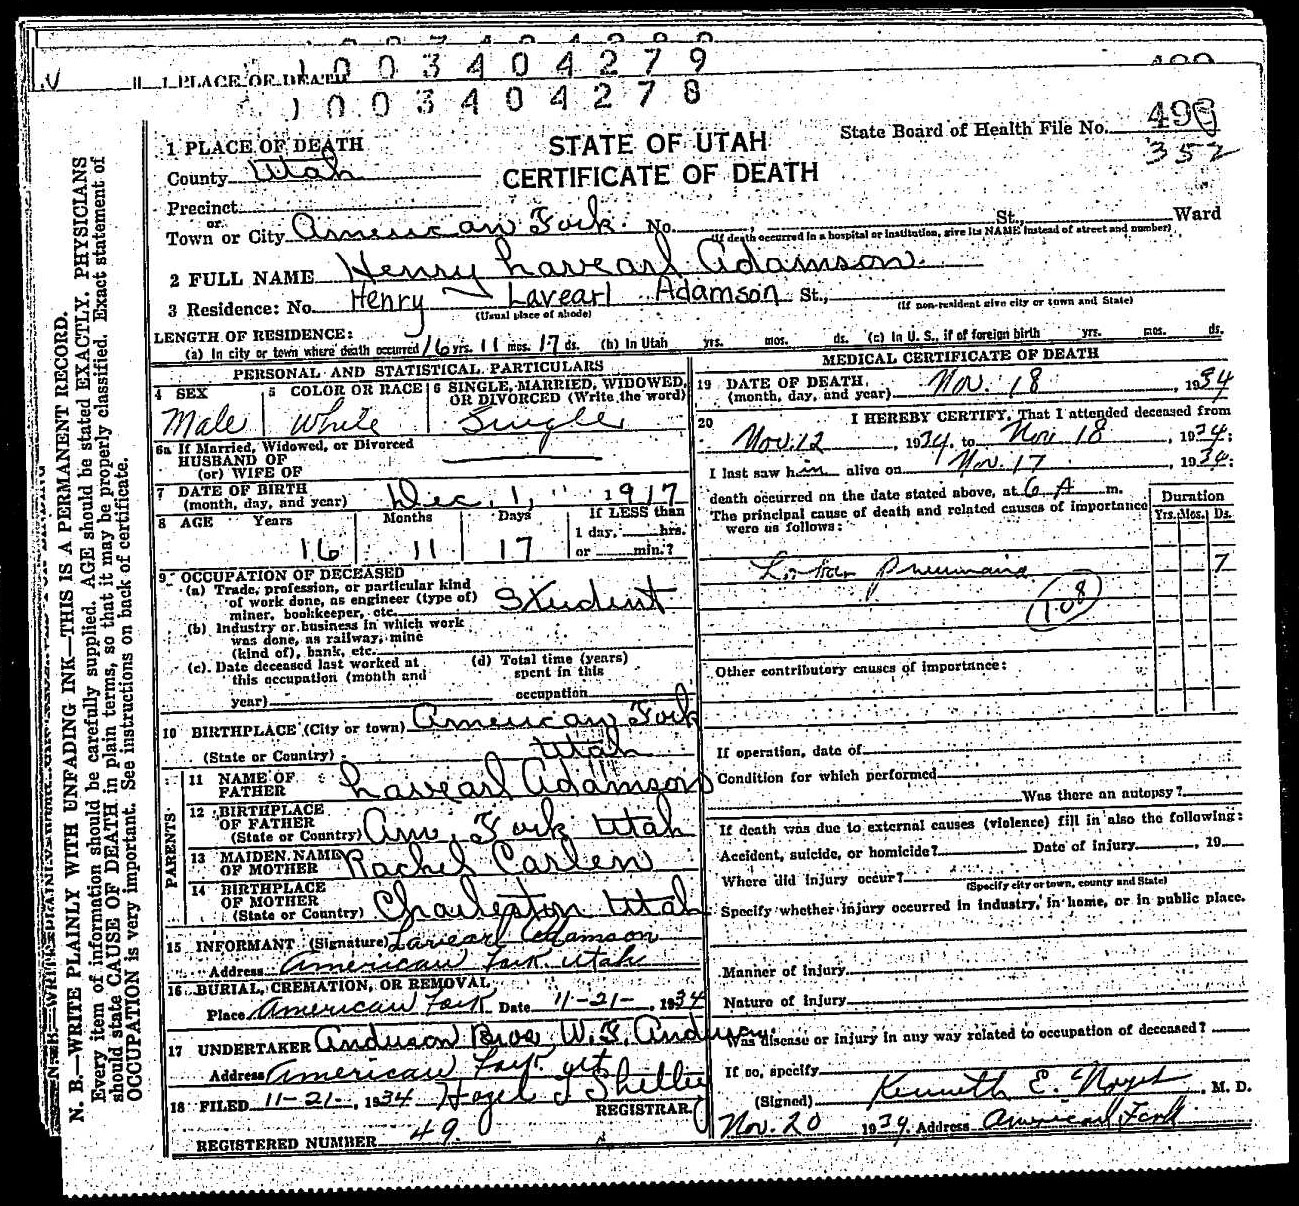 1 0 0 3 4 0 4 2 7 9
1 PLACE OF DEATH
1 0 0 3 4 0 4 2 7 8
STATE OF UTAH
CERTIFICATE OF DEATH
State Board of Health File No. 498
352
1 PLACE OF DEATH
County Utah
Precinct
or
Town or City American Fork. No. St., Ward
(If death occurred in a hospital or institution, give its NAME instead of street and number)
2 FULL NAME Henry Lavearl Adamson.
3 Residence: No. Henry Lavearl Adamson St.,
(Usual place of abode) (If non-resident give city or town and State)
LENGTH OF RESIDENCE:
(a) In city or town where death occurred 16 yrs. 11 mos. 17 ds. (b) In Utah yrs. mos. ds. (c) In U. S., if of foreign birth yrs. mos. ds.
PERSONAL AND STATISTICAL PARTICULARS
4 SEX Male
5 COLOR OR RACE White
6 SINGLE, MARRIED, WIDOWED, OR DIVORCED (Write the word) Single
6a If Married, Widowed, or Divorced
HUSBAND OF
(or) WIFE OF
7 DATE OF BIRTH
(month, day, and year) Dec 1, 1917
8 AGE Years Months Days If LESS than
1 day, hrs.
16 11 17 or min.?
9 OCCUPATION OF DECEASED
(a) Trade, profession, or particular kind
of work done, as engineer (type of)
miner, bookkeeper, etc. Student
(b) Industry or business in which work
was done, as railway, mine
(kind of), bank, etc.
(c) Date deceased last worked at
this occupation (month and
year)
(d) Total time (years)
spent in this
occupation
10 BIRTHPLACE (City or town) American Fork
(State or Country) Utah
PARENTS
11 NAME OF
FATHER Lavearl Adamson
12 BIRTHPLACE
OF FATHER
(State or Country) Am. Fork Utah
13 MAIDEN NAME
OF MOTHER Rachel Carlen
14 BIRTHPLACE
OF MOTHER
(State or Country) Charleston Utah
15 INFORMANT (Signature) Lavearl Adamson
Address American Fork Utah
16 BURIAL, CREMATION, OR REMOVAL
Place American Fork Date 11-21-, 1934
17 UNDERTAKER Anderson Bros. W.
Address American Fork Ut
18 FILED 11-21-, 1934 Hazel Shelley
REGISTRAR
REGISTERED NUMBER 49.
MEDICAL CERTIFICATE OF DEATH
19 DATE OF DEATH,
(month, day, and year) Nov. 18, 1934
20 I HEREBY CERTIFY, That I attended deceased from
Nov. 12, 1934 to Nov 18, 1934;
I last saw him alive on Nov. 17, 1934;
death occurred on the date stated above, at 6 A m.
The principal cause of death and related causes of importance
were as follows:
Duration
Yrs. Mos. Ds.
Lobar Pneumonia 7
108
Other contributory causes of importance:
If operation, date of
Condition for which performed
Was there an autopsy?
If death was due to external causes (violence) fill in also the following:
Accident, suicide, or homicide? Date of injury, 19
Where did injury occur?
(Specify city or town, county and State)
Specify whether injury occurred in industry, in home, or in public place.
Manner of injury
Nature of injury
Was disease or injury in any way related to occupation of deceased?
If so, specify
(Signed) Kenneth E. Noyes M. D.
Nov. 20 1934 Address American Fork
N. B.—WRITE PLAINLY WITH UNFADING INK—THIS IS A PERMANENT RECORD.
Every item of information should be carefully supplied. AGE should be stated EXACTLY. PHYSICIANS
should state CAUSE OF DEATH in plain terms, so that it may be properly classified. Exact statement of
OCCUPATION is very important. See instructions on back of certificate.